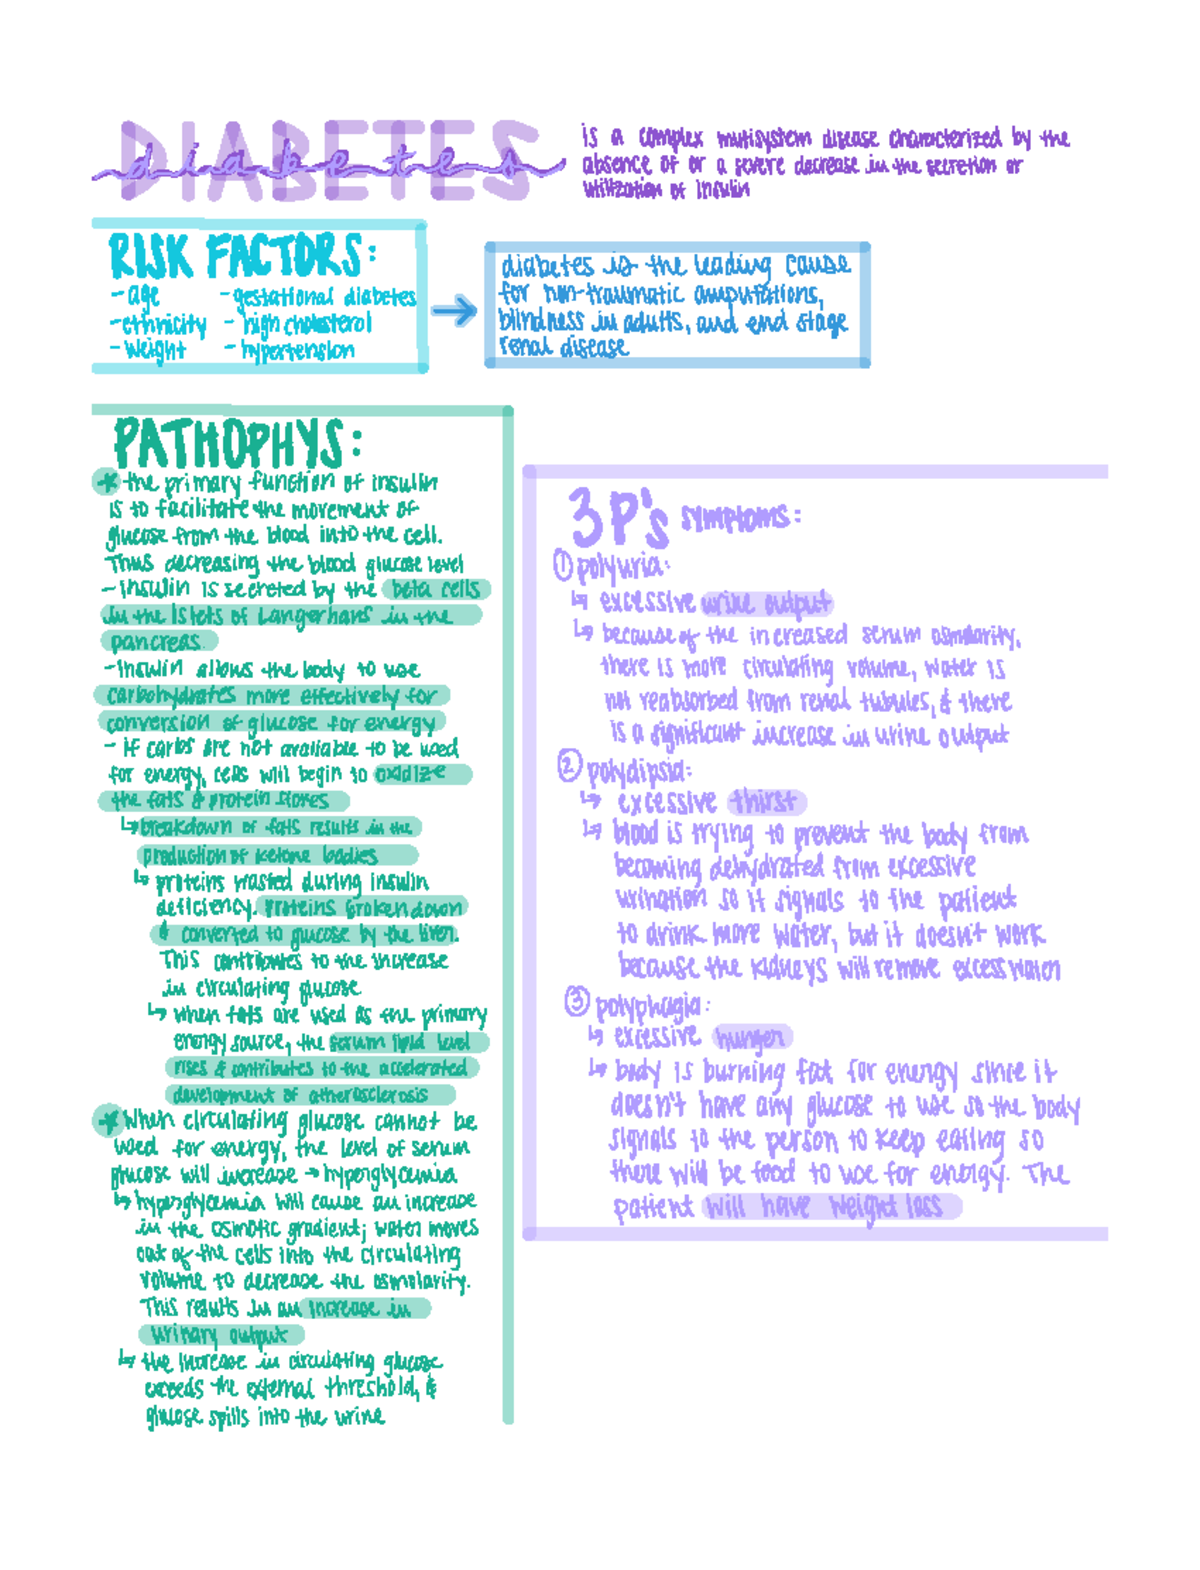 DIABETES
diabetes
is a complex multisystem disease characterized by the
absence of or a severe decrease in the secretion or
utilization of insulin
RISK FACTORS:
- age
- ethnicity
- weight
- gestational diabetes
- high cholsterol
- hypertension
→
diabetes is the leading cause
for non-traumatic amputations,
blindness in adults, and end stage
renal disease
PATHOPHYS:
* the primary function of insulin
is to facilitate the movement of
glucose from the blood into the cell.
Thus decreasing the blood glucose level
- Insulin is secreted by the beta cells
in the Islets of Langerhans in the
pancreas.
- Insulin allows the body to use
carbohydrates more effectively for
conversion of glucose for energy
- if carbs are not available to be used
for energy, cells will begin to oxidize
the fats & protein stores
↳ breakdown of fats results in the
production of ketone bodies
↳ proteins wasted during insulin
deficiency. Proteins broken down
& converted to glucose by the liver.
This contributes to the increase
in circulating glucose
↳ when fats are used as the primary
energy source, the serum lipid level
rises & contributes to the accelerated
development of atherosclerosis
* When circulating glucose cannot be
used for energy, the level of serum
glucose will increase → hyperglycemia
↳ hyperglycemia will cause an increase
in the osmotic gradient; water moves
out of the cells into the circulating
volume to decrease the osmolarity.
This results in an increase in
urinary output
↳ the increase in circulating glucose
exceeds the external threshold, &
glucose spills into the urine
3 P's symptoms:
① polyuria:
↳ excessive urine output
↳ because of the increased serum osmolarity,
there is more circulating volume, water is
not reabsorbed from renal tubules, & there
is a significant increase in urine output
② polydipsia:
↳ excessive thirst
↳ blood is trying to prevent the body from
becoming dehydrated from excessive
urination so it signals to the patient
to drink more water, but it doesn't work
because the kidneys will remove excess water
③ polyphagia:
↳ excessive hunger
↳ body is burning fat for energy since it
doesn't have any glucose to use so the body
signals to the person to keep eating so
there will be food to use for energy. The
patient will have weight loss